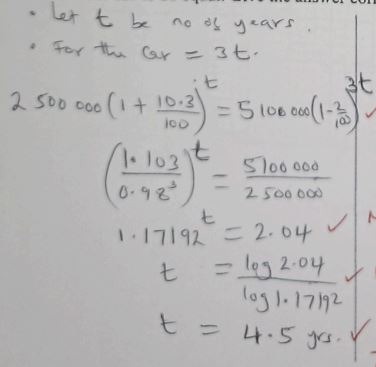 • Let t be no of years.
• For the car = 3t.
2 500 000 (1 + 10.3/100)^t = 5 100 000 (1 - 2/100)^3t
(1.103/0.98³)^t = 5100 000/2 500 000
1.17192^t = 2.04
t = log 2.04/log 1.17192
t = 4.5 yrs.